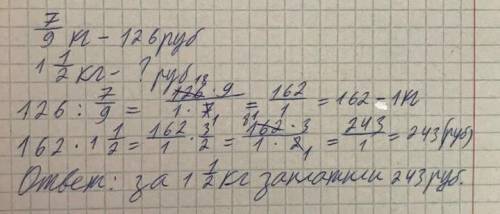 7/9 кг – 126 руб
1 1/2 кг – ? руб
126 : 7/9 = 126 · 9 / 1 · 7 = 162/1 = 162 – 1 кг
162 · 1 1/2 = 162/1 · 3/2 = 162 · 3 / 1 · 2 = 243/1 = 243 (руб)
Ответ: за 1 1/2 кг заплатили 243 руб.